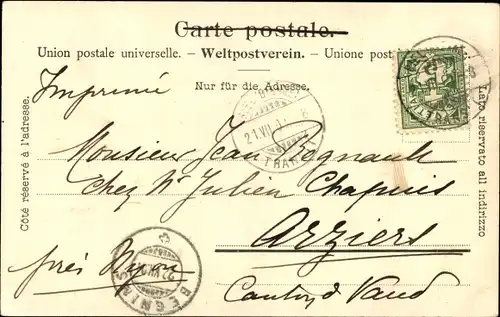 Carte postale.
Union postale universelle. - Weltpostverein. - Unione post
Nur für die Adresse.
Côté réservé à l'adresse.
Lato riservato all indirizzo
Imprimé
21.VII
TRANS
Monsieur Jean Regnault
chez Mr Julien Chapuis
Arziers
près Nyon
Canton d. Vaud
BEGNINS